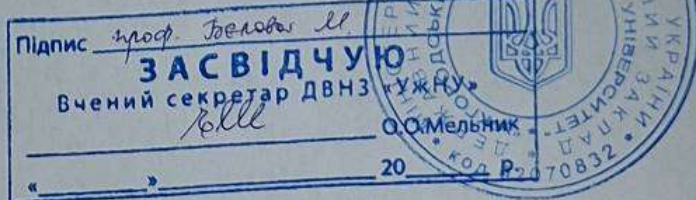 Підпис проф. Белової М.
ЗАСВІДЧУЮ
Вчений секретар ДВНЗ «УжНУ»
О.О.Мельник
«____»____ 20__ р.
УКРАЇНИ
ЗАКЛАД
УНІВЕРСИТЕТ
КОД 02070832